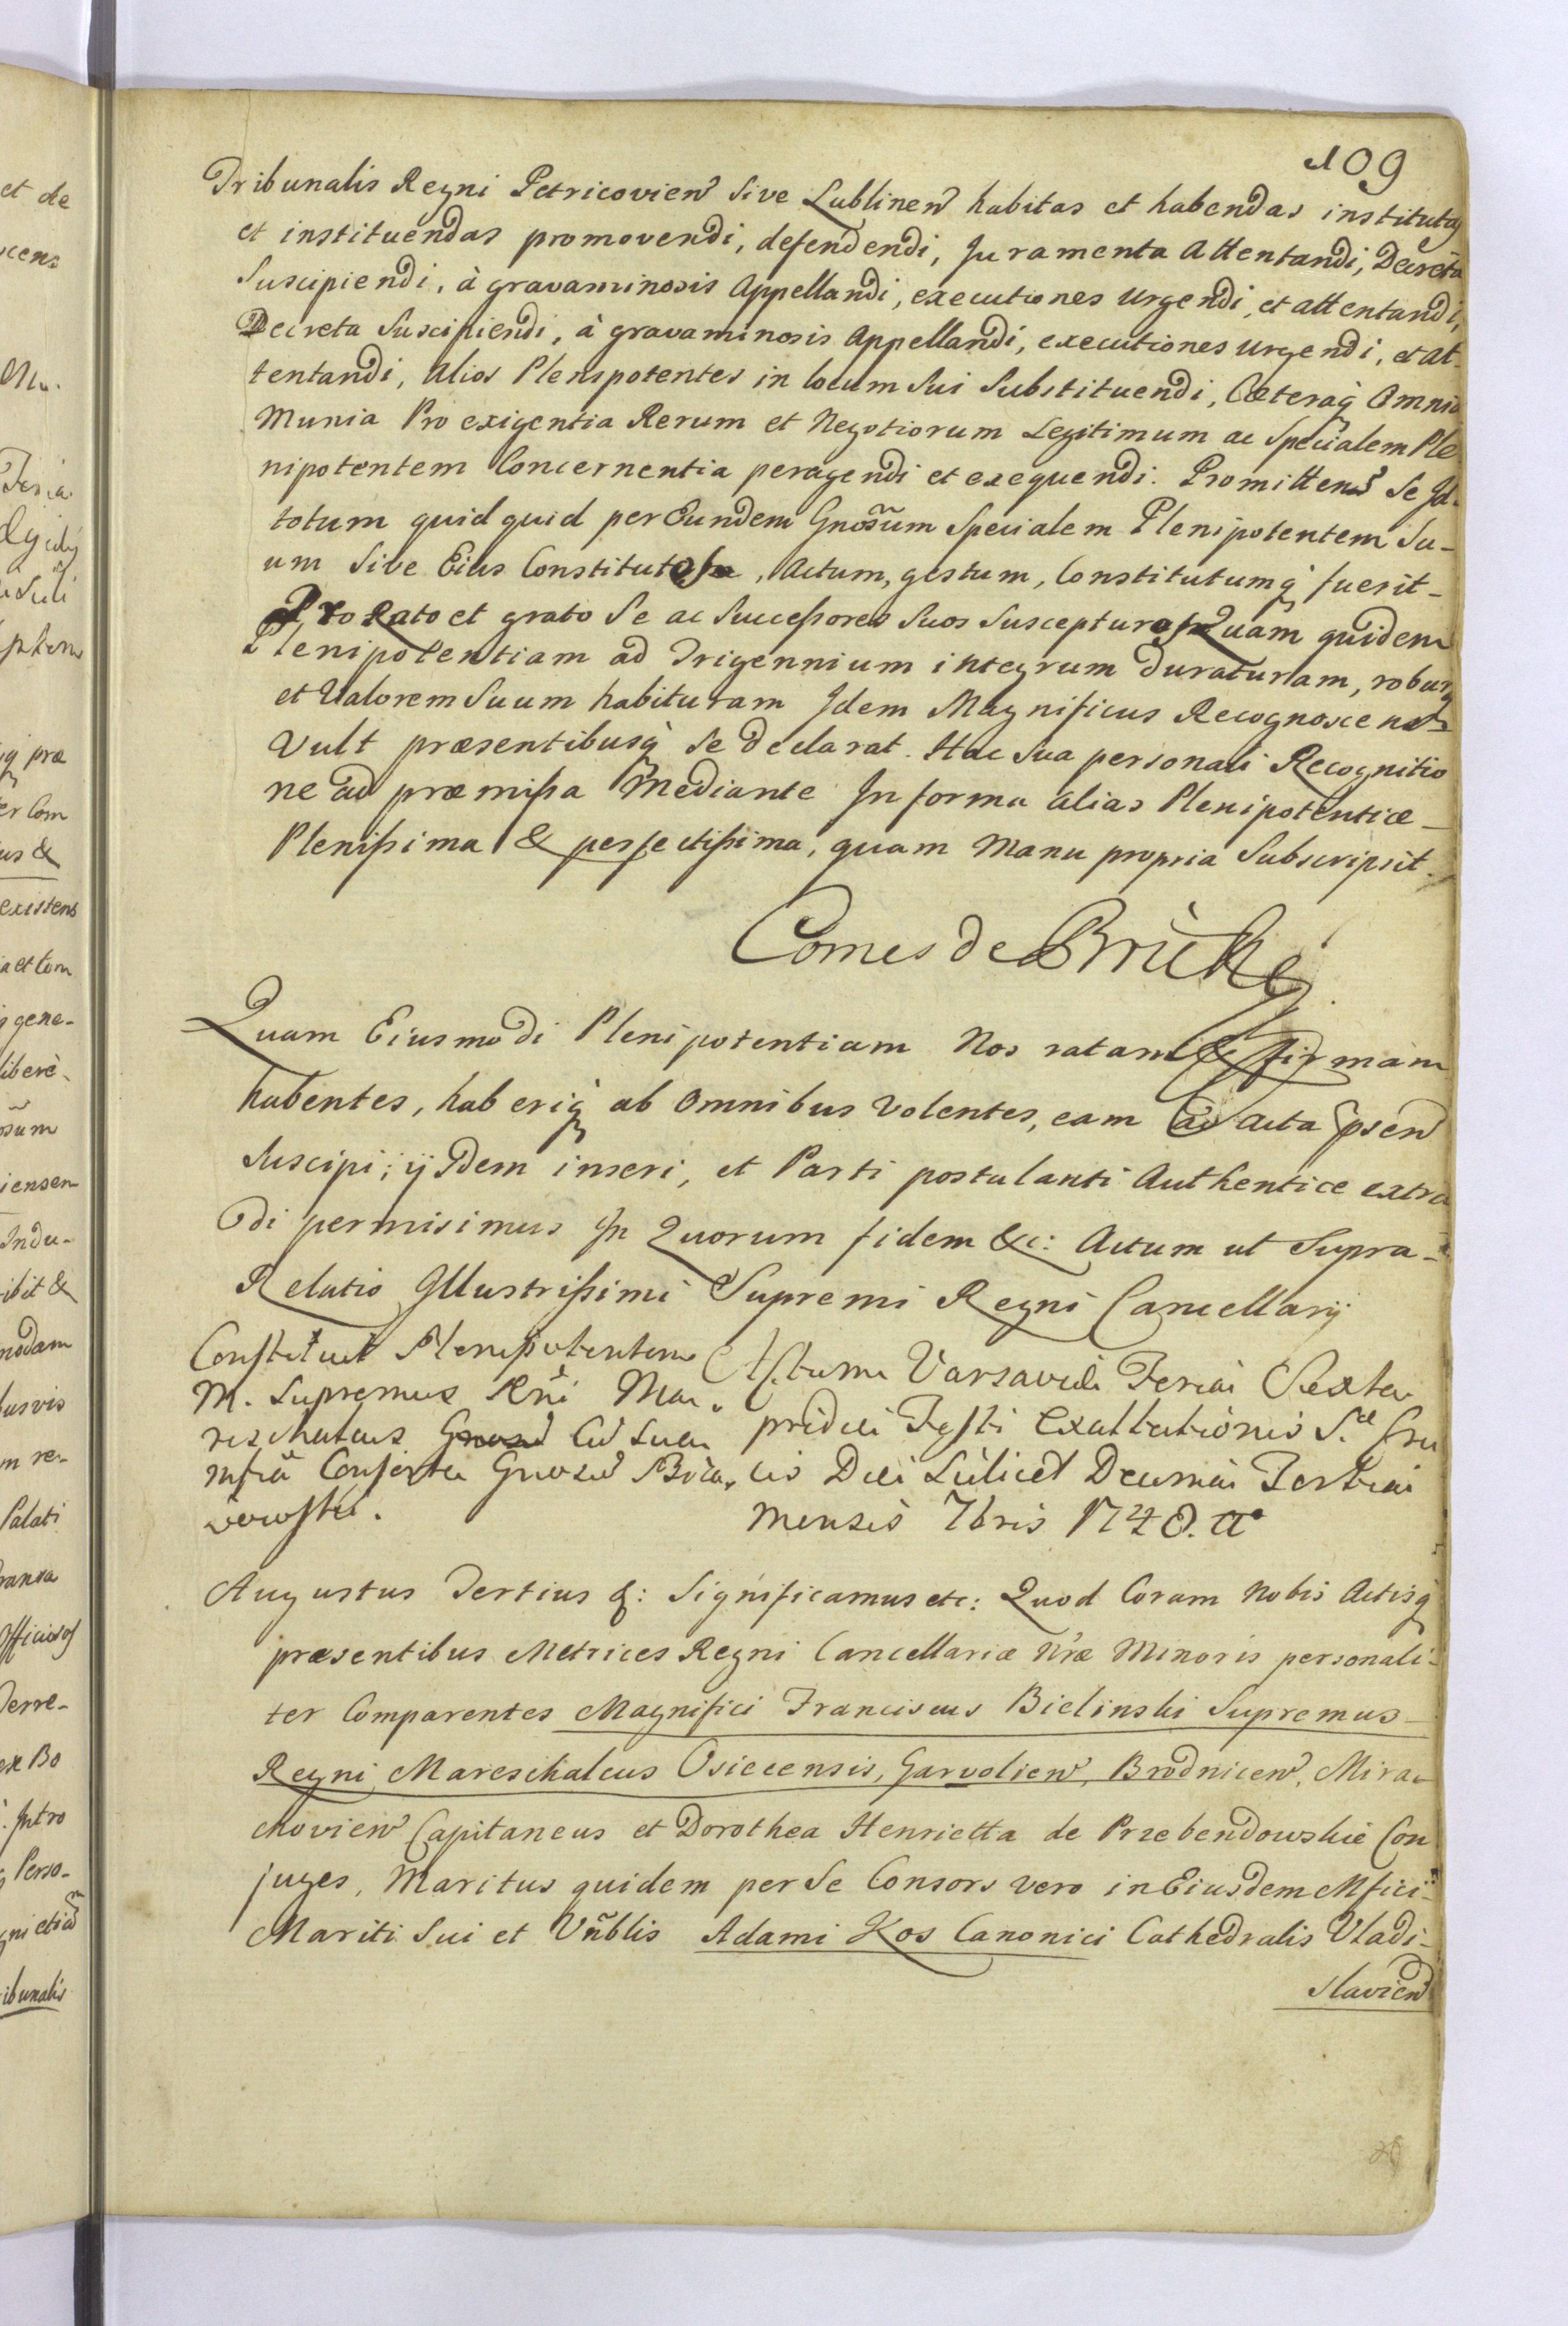 109
Tribunalis Regni Petricovien sive Lublinen habitas et habendas institutas
et instituendas promovendi, defendendi, Juramenta Attentandi, Decreta
Suscipiendi, à gravaminosis Appellandi, executiones urgendi, et attentandi,
Decreta Suscipiendi, à gravaminosis Appellandi, executiones urgendi, et at-
tentandi, Alios Plenipotentes in locum Sui Substituendi, Caeteraq Omnia
Munia Pro exigentia Rerum et Negotiorum Legitimum ac Specialem Ple
nipotentem Concernentia peragendi et exequendi. Promittens Se Id-
totum quidquid per Eundem Gnosum Specialem Plenipotentem Su-
um Sive Eius Constitutos, Actum, gestum, Constitutumq fuerit-
Pro Rato et grato Se ac Successores Suos Suscepturos Quam quidem
Plenipotentiam ad Trigennium integrum duraturam, roburq
et Valorem Suum habituram Idem Magnificus Recognoscens
Vult praesentibusq Se declarat. Hac Sua personali Recognitio
ne ad praemissa Mediante In forma alias Plenipotentiae
Plenissima & perfectissima, quam Manu propria Subscripsit.
Comes de Brühl
Quam Eiusmodi Plenipotentiam Nos ratam & firmam
habentes, haberiq ab Omnibus Volentes, eam ad Acta psen
Suscipi, ijsdem inseri, et Parti postulanti Authentice extra
di permisimus In Quorum fidem &c: Actum ut Supra-
Relatio Illustrissimi Supremi Regni Cancellarij
Constituit Plenipotentem
M. Supremus Rni Mar.
reschalcus Cu Sua
mfca Conforte Gnosu
Actum Varsaviae Feria Sexta
pridie Festi Exaltationis S. Cru
cis Die Scilicet Decima Tertia
Mensis 7bris 1748. A
Augustus Tertius &: Significamus etc: Quod Coram Nobis Actisq
praesentibus Metrices Regni Cancellariae Nrae Minoris personali-
ter Comparentes Magnifici Franciscus Bielinski Supremus
Regni Mareschalcus Osiecensis, Garvolien, Brodnicen, Mira-
chovien Capitaneus et Dorothea Henrietta de Przebendowskie Con
juges, Maritus quidem per Se Consors vero in Eiusdem Mfici
Mariti Sui et Vnblis Adami Kos Canonici Cathedralis Vladi-
slavien